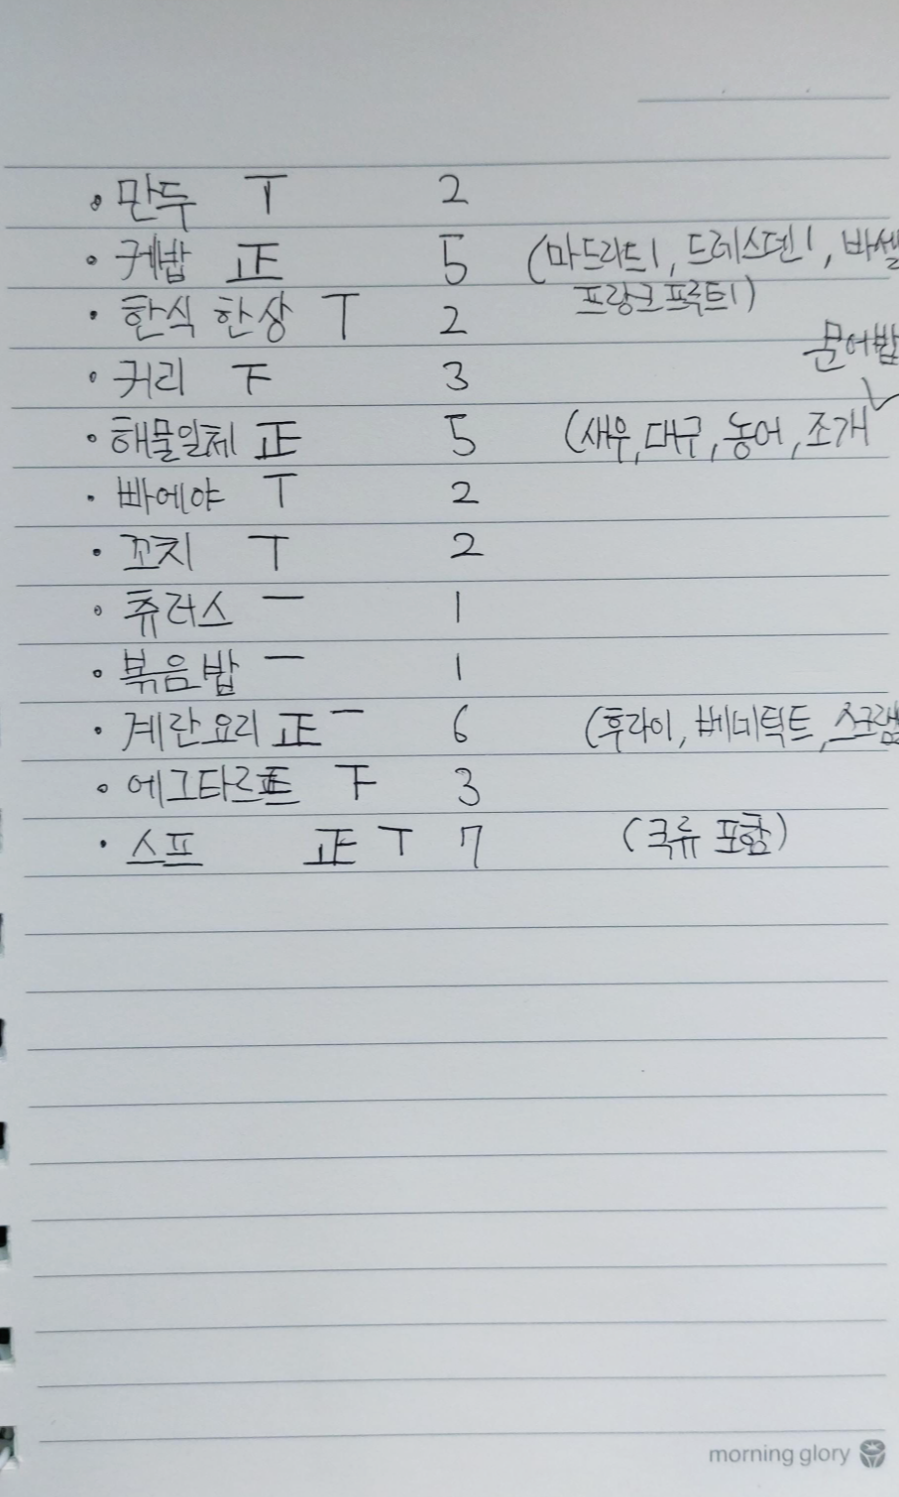 • 만두 T 2
• 케밥 正 5 (마드리드1, 드레스덴1, 바셀
프랑크푸르트1)
• 한식 한상 T 2
문어밥
• 커리 下 3
• 해물일체 正 5 (새우, 대구, 농어, 조개
• 빠에야 T 2
• 꼬치 T 2
• 츄러스 一 1
• 볶음밥 一 1
• 계란요리 正一 6 (후라이, 베네틱트, 스크램
• 에그타르트 下 3
• 스프 正 T 7 (국류 포함)
morning glory